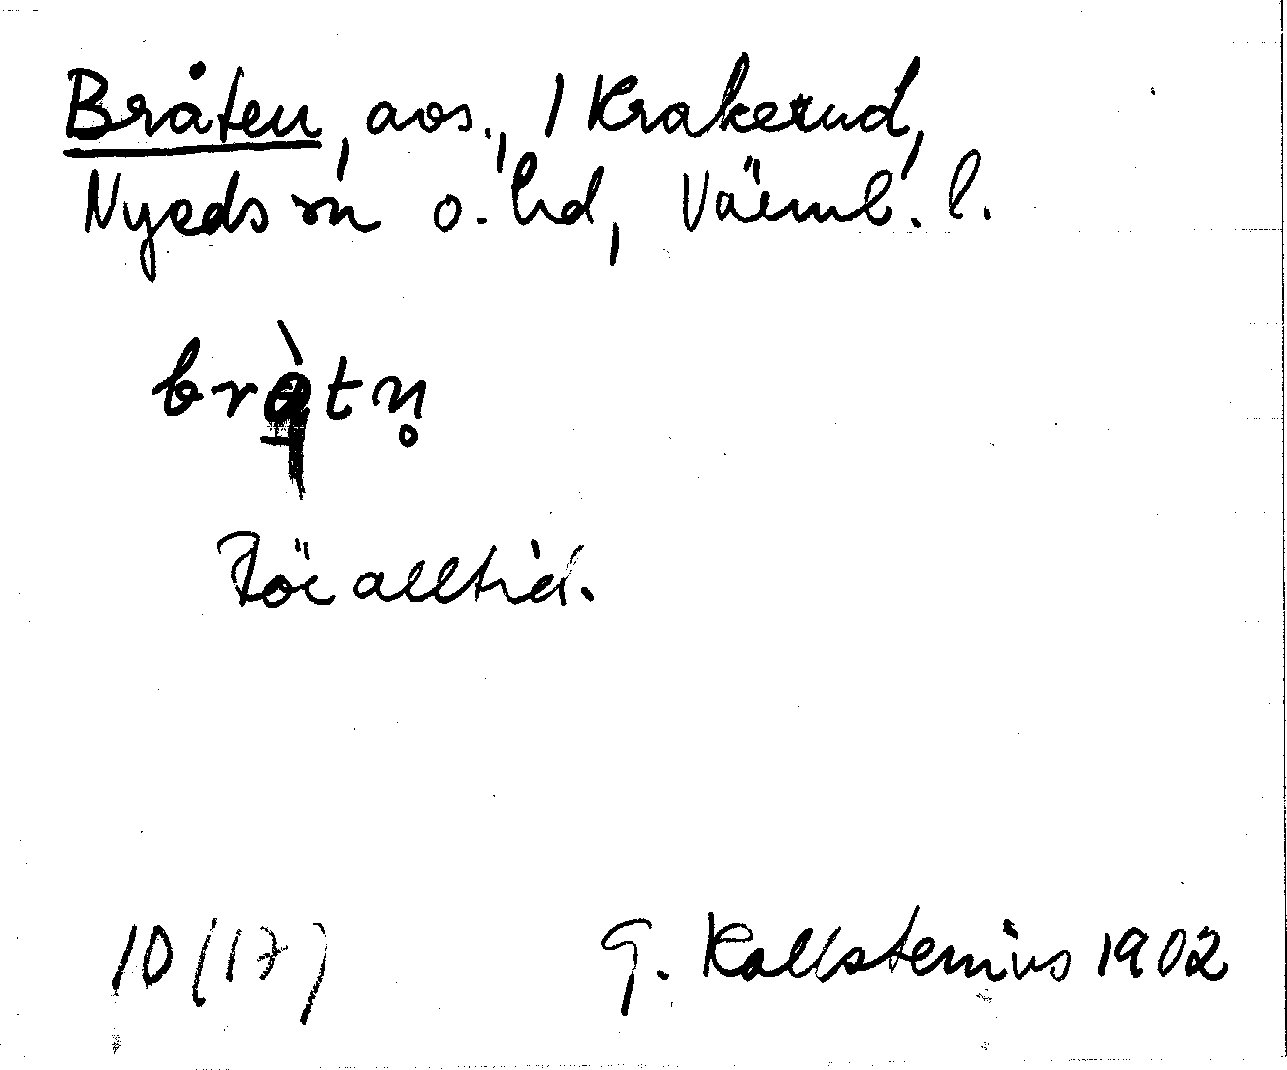 Bråten, avs., / Krakerud,
Nyeds sn o. hd, Värml. l.
bràtn̥
För alltid.
10 (17) G. Kallstenius 1902